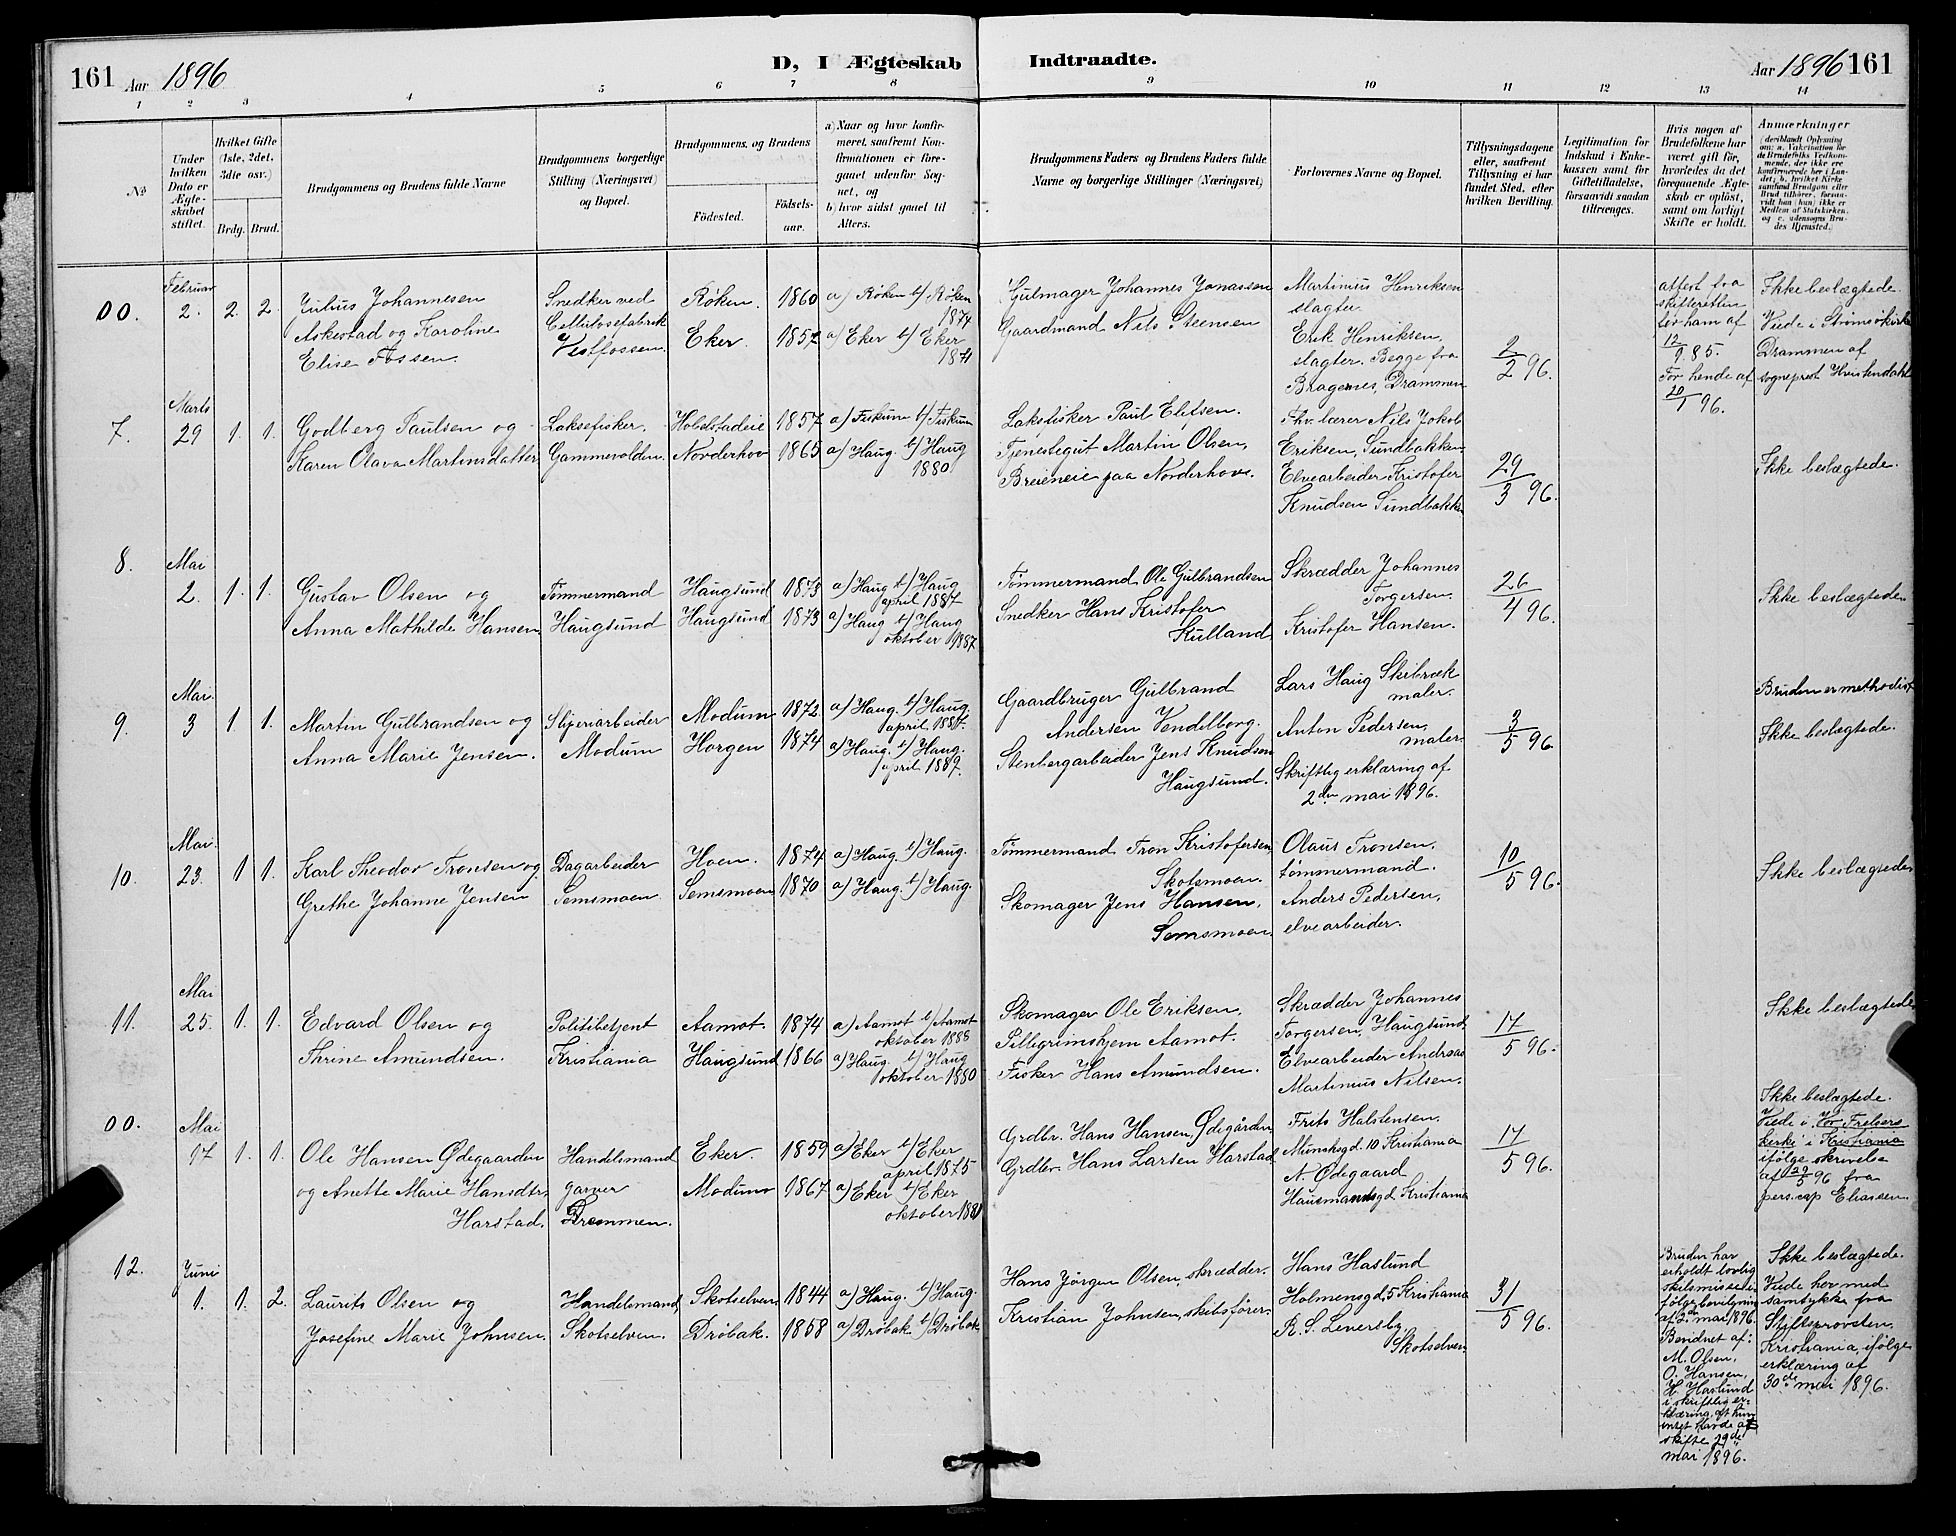 161 Aar 1896 D, I Ægteskab Indtraadte. Aar 1896 161
1 2 3 4 5 6 7 8 9 10 11 12 13 14
No
Under hvilken Dato er Ægteskabet stiftet.
Hvilket Gifte (1ste, 2det, 3die osv.)
Brdg. Brud.
Brudgommens og Brudens fulde Navne
Brudgommens borgerlige Stilling (Næringsvei) og Bopæl.
Brudgommens, og Brudens
Fødested. Fødselsaar.
a) Naar og hvor konfirmeret, saafremt Konfirmationen er foregaaet udenfor Sognet, og
b) hvor sidst gaaet til Alters.
Brudgommens Faders og Brudens Faders fulde Navne og borgerlige Stillinger (Næringsvei)
Forlovernes Navne og Bopæl.
Tillysningsdagene eller, saafremt Tillysning ei har fundet Sted, efter hvilken Bevilling.
Legitimation for Indskud i Enkekassen samt for Giftetilladelse, forsaavidt saadan tiltrænges.
Hvis nogen af Brudefolkene har været gift før, hvorledes da det foregaaende Ægteskab er opløst, samt om lovligt Skifte er holdt.
Anmærkninger
(deriblandt Oplysning om: a. Vakcination for de Brudefolks Vedkommende, der ikke ere konfirmerede her i Landet; b. hvilket Kirkesamfund Brudgom eller Brud tilhører, forsaavidt han (hun) ikke er Medlem af Statskirken, og c. udensogns Brudes Hjemsted.)
00.
Februar
2. 2. 2.
Julius Johannesen
Askestad og Karoline
Elise Fossen.
Snedker ved
Cellulosefabrik
Vestfossen.
Røken. 1860 a) Røken b) Røken
1874
Eker. 1857 a) Eker b) Eker
1871
Gulmager Johannes Jonassen
Gaardmand Nils Steensen
Martinius Henriksen
slagter.
Erik Henriksen,
slagter. Begge fra
Bragernes, Drammen
2/2 96.
attest fra
skifteretten
for ham af
12/9 85.
For hende af
20/1 96.
Ikke beslægtede.
Viede i Strømsø kirke
Drammen af
sogneprest Hvistendahl
7.
Marts
29 1. 1.
Godberg Paulsen og
Karen Olava Martinsdatter
Laksefisker,
Gammevolden.
Holstadeie 1857 a) Fiskum b) Fiskum
Norderhov 1865 a) Haug. b) Haug
1880
Laksfisker Paul Elefsen.
Tjenestegut Martin Olsen,
Breieneie paa Norderhove.
Fhv. lærer Nils Jokob
Eriksen, Sundbakken
Elvearbeider Kristofer
Knudsen Sundbakken
29/3 96.
Ikke beslægtede.
8.
Mai
2. 1. 1.
Gustav Olsen og
Anna Mathilde Hansen
Tømmermand
Haugsund
Haugsund 1873 a) Haug b) Haug
april 1887
Haugsund 1873 a) Haug b) Haug
oktober 1887
Tømmermand Ole Gulbrandsen
Snedker Hans Kristofer
Kulland
Skrædder Johannes
Torgersen.
Kristofer Hansen.
26/4 96.
Ikke beslægtede
9.
Mai
3 1 1.
Martin Gulbrandsen og
Anna Marie Jensen.
Sliperiarbeider
Modum
Modum 1872 a) Haug. b) Haug.
april 1887.
Horgen 1874 a) Haug. b) Haug.
april 1889.
Gaardbruger Gulbrand
Andersen Vendelborg.
Stenbergarbeider Jens Knudsen
Haugsund.
Lars Haug Skibræk
maler.
Anton Pedersen,
maler.
Skriftlig erklæring af
2den mai 1896.
3/5 96
Bruden er methodist
Ikke beslægtede.
10.
Mai.
23. 1 1.
Karl Theodor Tronsen og
Grethe Johanne Jensen
Dagarbeider
Semsmoen
Hoen. 1874 a) Haug. b) Haug.
Semsmoen 1870 a) Haug. b) Haug.
Tømmermand Tron Kristofersen
Skotsmoen.
Skomager Jens Hansen,
Semsmoen.
Olaus Tronsen,
tømmermand.
Anders Pedersen,
elvearbeider.
10/5 96.
Ikke beslægtede
11.
Mai
25. 1. 1.
Edvard Olsen og
Thrine Amundsen.
Politibetjent
Kristiania
Aamot. 1874 a) Aamot b) Aamot
oktober 1888
Haugsund 1866 a) Haug. b) Haug
oktober 1880
Skomager Ole Eriksen,
Pillegrimshjem Aamot.
Fisker Hans Amundsen.
Skrædder Johannes
Torgersen, Haugsund
Elvearbeider Andreas
Martinius Nilsen.
17/5 96.
Ikke beslægtede
00.
Mai
17 1. 1.
Ole Hansen Ødegaarden
og Anette Marie Hansdtr.
Harstad.
Handelsmand
garver
Drammen.
Eker. 1859 a) Eker b) Eker
april 1875
Modum 1867 a) Eker b) Eker
oktober 1881
Grdbr. Hans Hansen, Ødegården
Grdbr. Hans Larsen Harstad
Frits Halstensen,
Munksgd. 10 Kristiania
N. Ødegaard
Hausmannsgd. Kristiania
17/5 96.
Ikke beslægtede.
Viede i Vor Frelsers
kirke i Kristiania
ifølge skrivelse
af 29/5 96 fra
pers. cap Eliassen.
12.
Juni
1. 1. 2.
Laurits Olsen og
Josefine Marie Johnsen.
Handelsmand
Skotselven.
Skotselven 1844 a) Haug. b) Haug.
Drøbak. 1858 a) Drøbak b) Drøbak
Hans Jørgen Olsen, skrædder.
Kristian Johnsen, skibsfører.
Hans Haslund
Holmensgd. 5 Kristiania
R. S. Leversby
Skotselven
31/5 96.
Bruden har
erholdt lovlig
skilsmisse i-
følge bevilgning
af 2de mai 1896.
Bevidnet af:
M. Olsen,
O. Hansen,
H. Haslund
i skriftlig er-
klæring, at hun
intet havde at
skifte 29de
mai 1896.
Ikke beslægtede.
Viede her med
samtykke fra
Stiftsprovsten,
Kristiania, ifølge
erklæring af
30de mai 1896.